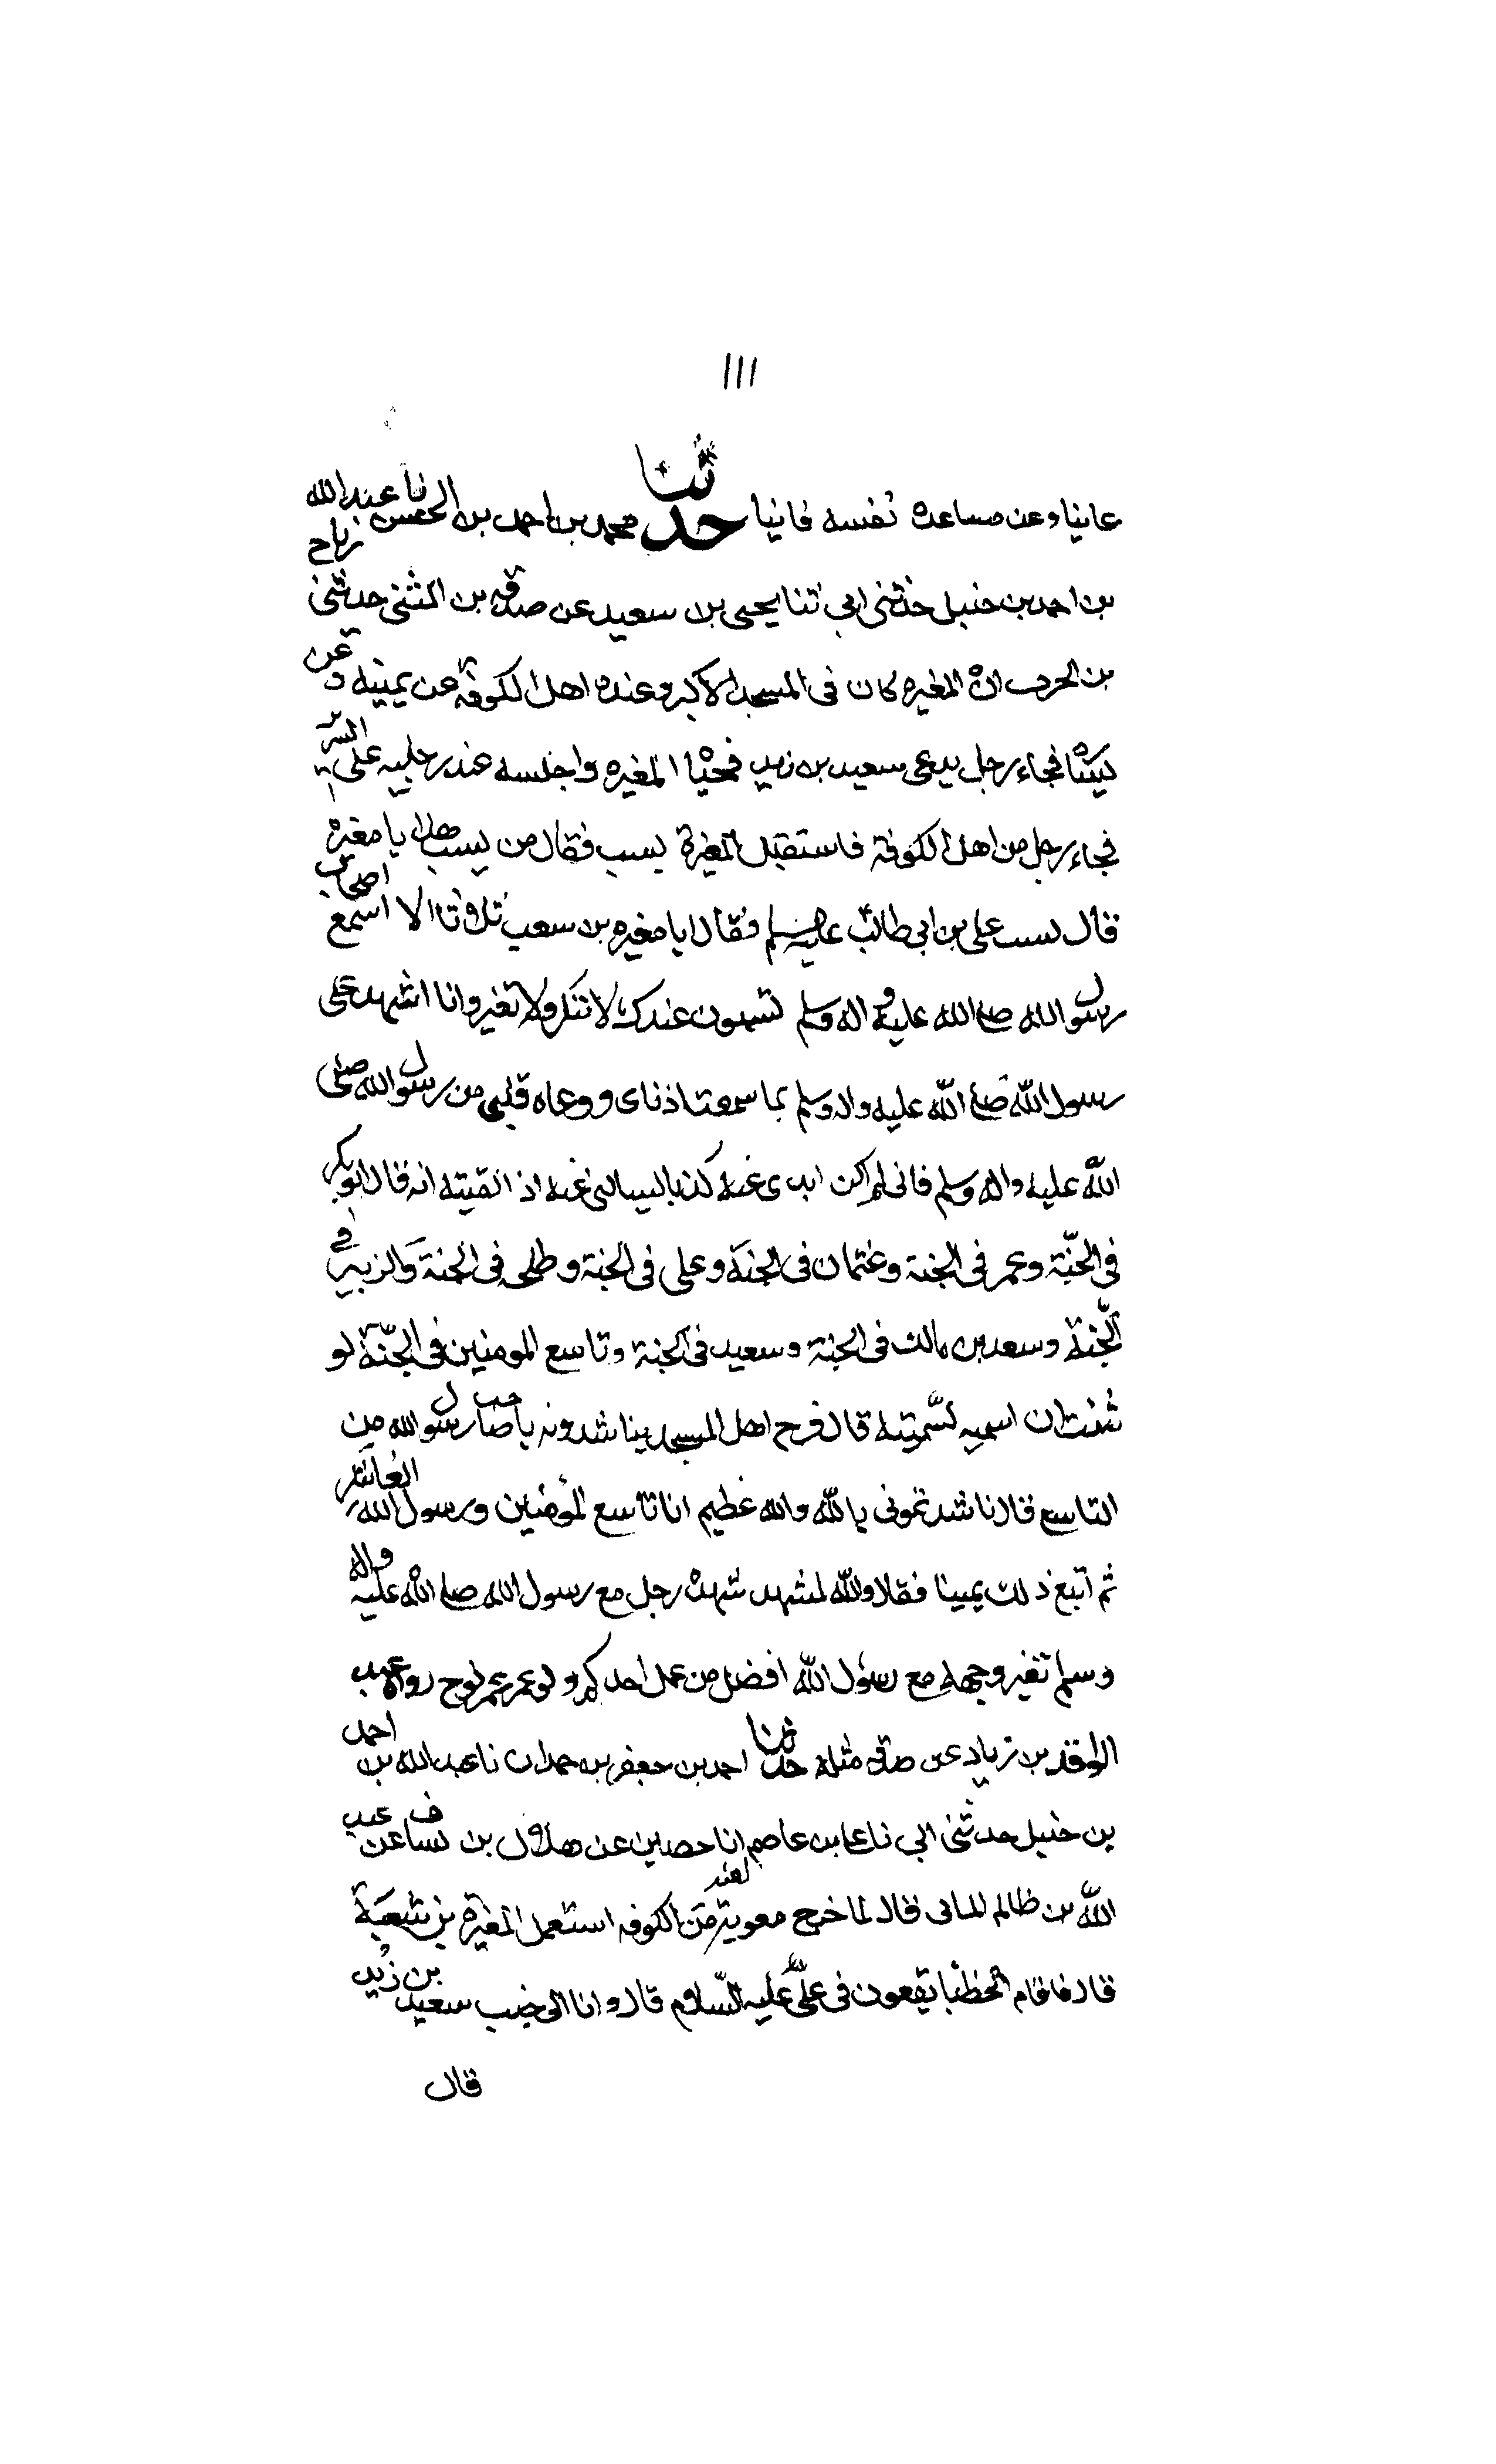 ١١١
عانيا وعن مساعدة نفسه فانيا حدثنا محمد بن احمد بن الحسن نا عبد الله
بن احمد بن حنبل حدثنى ابي ثنا يحيى بن سعيد عن صدقه بن المثنى حدثنى رباح
بن الحرث ان المغيره كان فى المسجد الاكبر وعنده اهل الكوفة عن يمينه وعن
يساره فجاء رجل يدعى سعيد بن زيد فحيا المغيره واجلسه عند رجليه على السرير
فجاء رجل من اهل الكوفة فاستقبل المغيرة يسب فقال من يسب هذا يا مغيره
قال يسب على بن ابي طالب عليه السلم فقال يا مغيره بن سعب ثلاثا الا اسمع اصحاب
رسول الله صلى الله عليه واله وسلم تسبون عندك لا تنكر ولا تغير وانا اشهد على
رسول الله صلى الله عليه واله وسلم بما سمعت اذناى ووعاه قلبى من رسول الله صلى
الله عليه واله وسلم فانى لم اكن اروى عنه كذبا يسالنى عنه اذا لقيته انه قال ابو بكر
فى الجنة وعمر فى الجنة وعثمان فى الجنة وعلى فى الجنة وطلحه فى الجنة والزبير فى
الجنة وسعد بن مالك فى الجنة وسعيد فى الجنة وتاسع المومنين فى الجنة لو
شئت ان اسميه لسميته قال فرج اهل المسجد يناشدونه يا صاحب رسول الله من
التاسع قال ناشدتمونى بالله والله عظيم انا تاسع المؤمنين ورسول الله العاشر
ثم اتبع ذلك يمينا فقال والله لمشهد شهده رجل مع رسول الله صلى الله عليه واله
وسلم تغبر وجهه مع رسول الله افضل من عمل احدكم ولو عمر عمر نوح رواه عبد
الواحد بن زياد عن صدقه مثله حدثنا احمد بن جعفر بن حمدان نا عبد الله بن احمد
بن حنبل حدثنى ابي نا على بن عاصم انا حصين عن هلال بن يساف عن عبد
الله بن ظالم المازنى قال لما خرج معوية من الكوفه استعمل المغيرة بن شعبة
قال فاقام الخطبا يقعون فى على عليه السلام قال وانا الى جنب سعيد بن زيد
قال